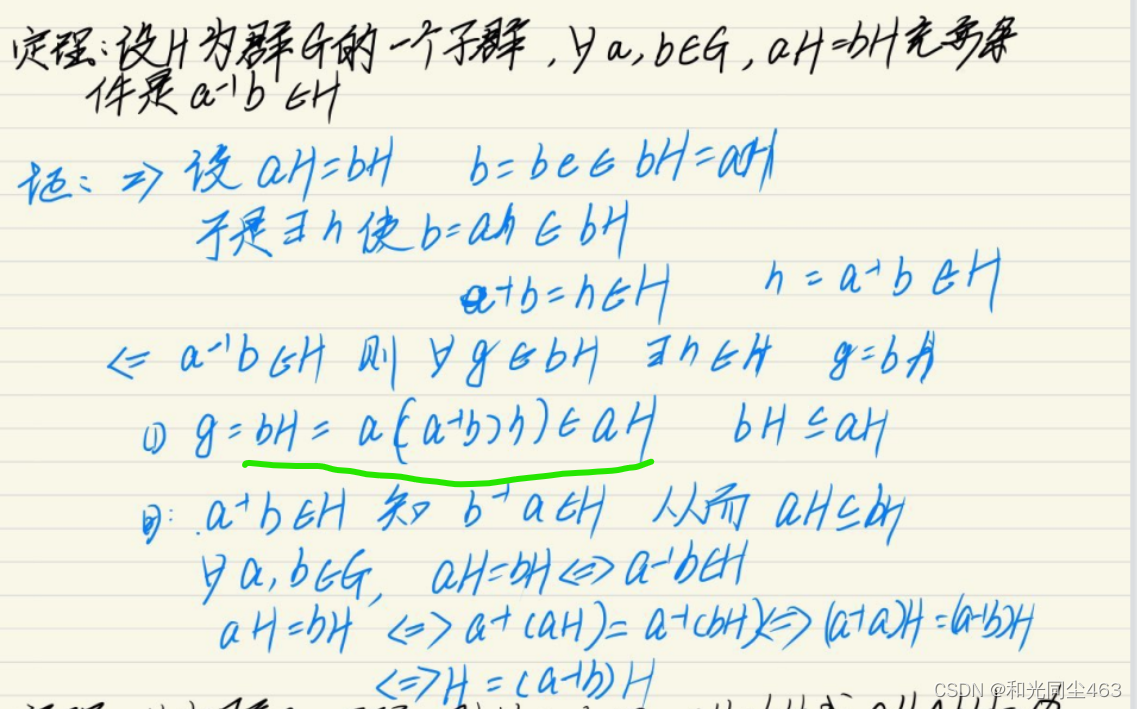 定理:设H为群G的一个子群,∀a,b∈G,aH=bH充要条
件是a⁻¹b∈H
证:⇒设 aH=bH b=be∈bH=aH
于是∃h使b=ah∈bH
a⁻¹b=h∈H h=a⁻¹b∈H
⇐ a⁻¹b∈H 则 ∀g∈bH ∃h∈H g=bh
① g=bH=a((a⁻¹b)h)∈aH bH⊆aH
②: a⁻¹b∈H 知 b⁻¹a∈H 从而 aH⊆bH
∀a,b∈G, aH=bH⇔a⁻¹b∈H
aH=bH ⇔a⁻¹(aH)=a⁻¹(bH)⇔(a⁻¹a)H=(a⁻¹b)H
⇔H=(a⁻¹b)H
CSDN @和光同尘463